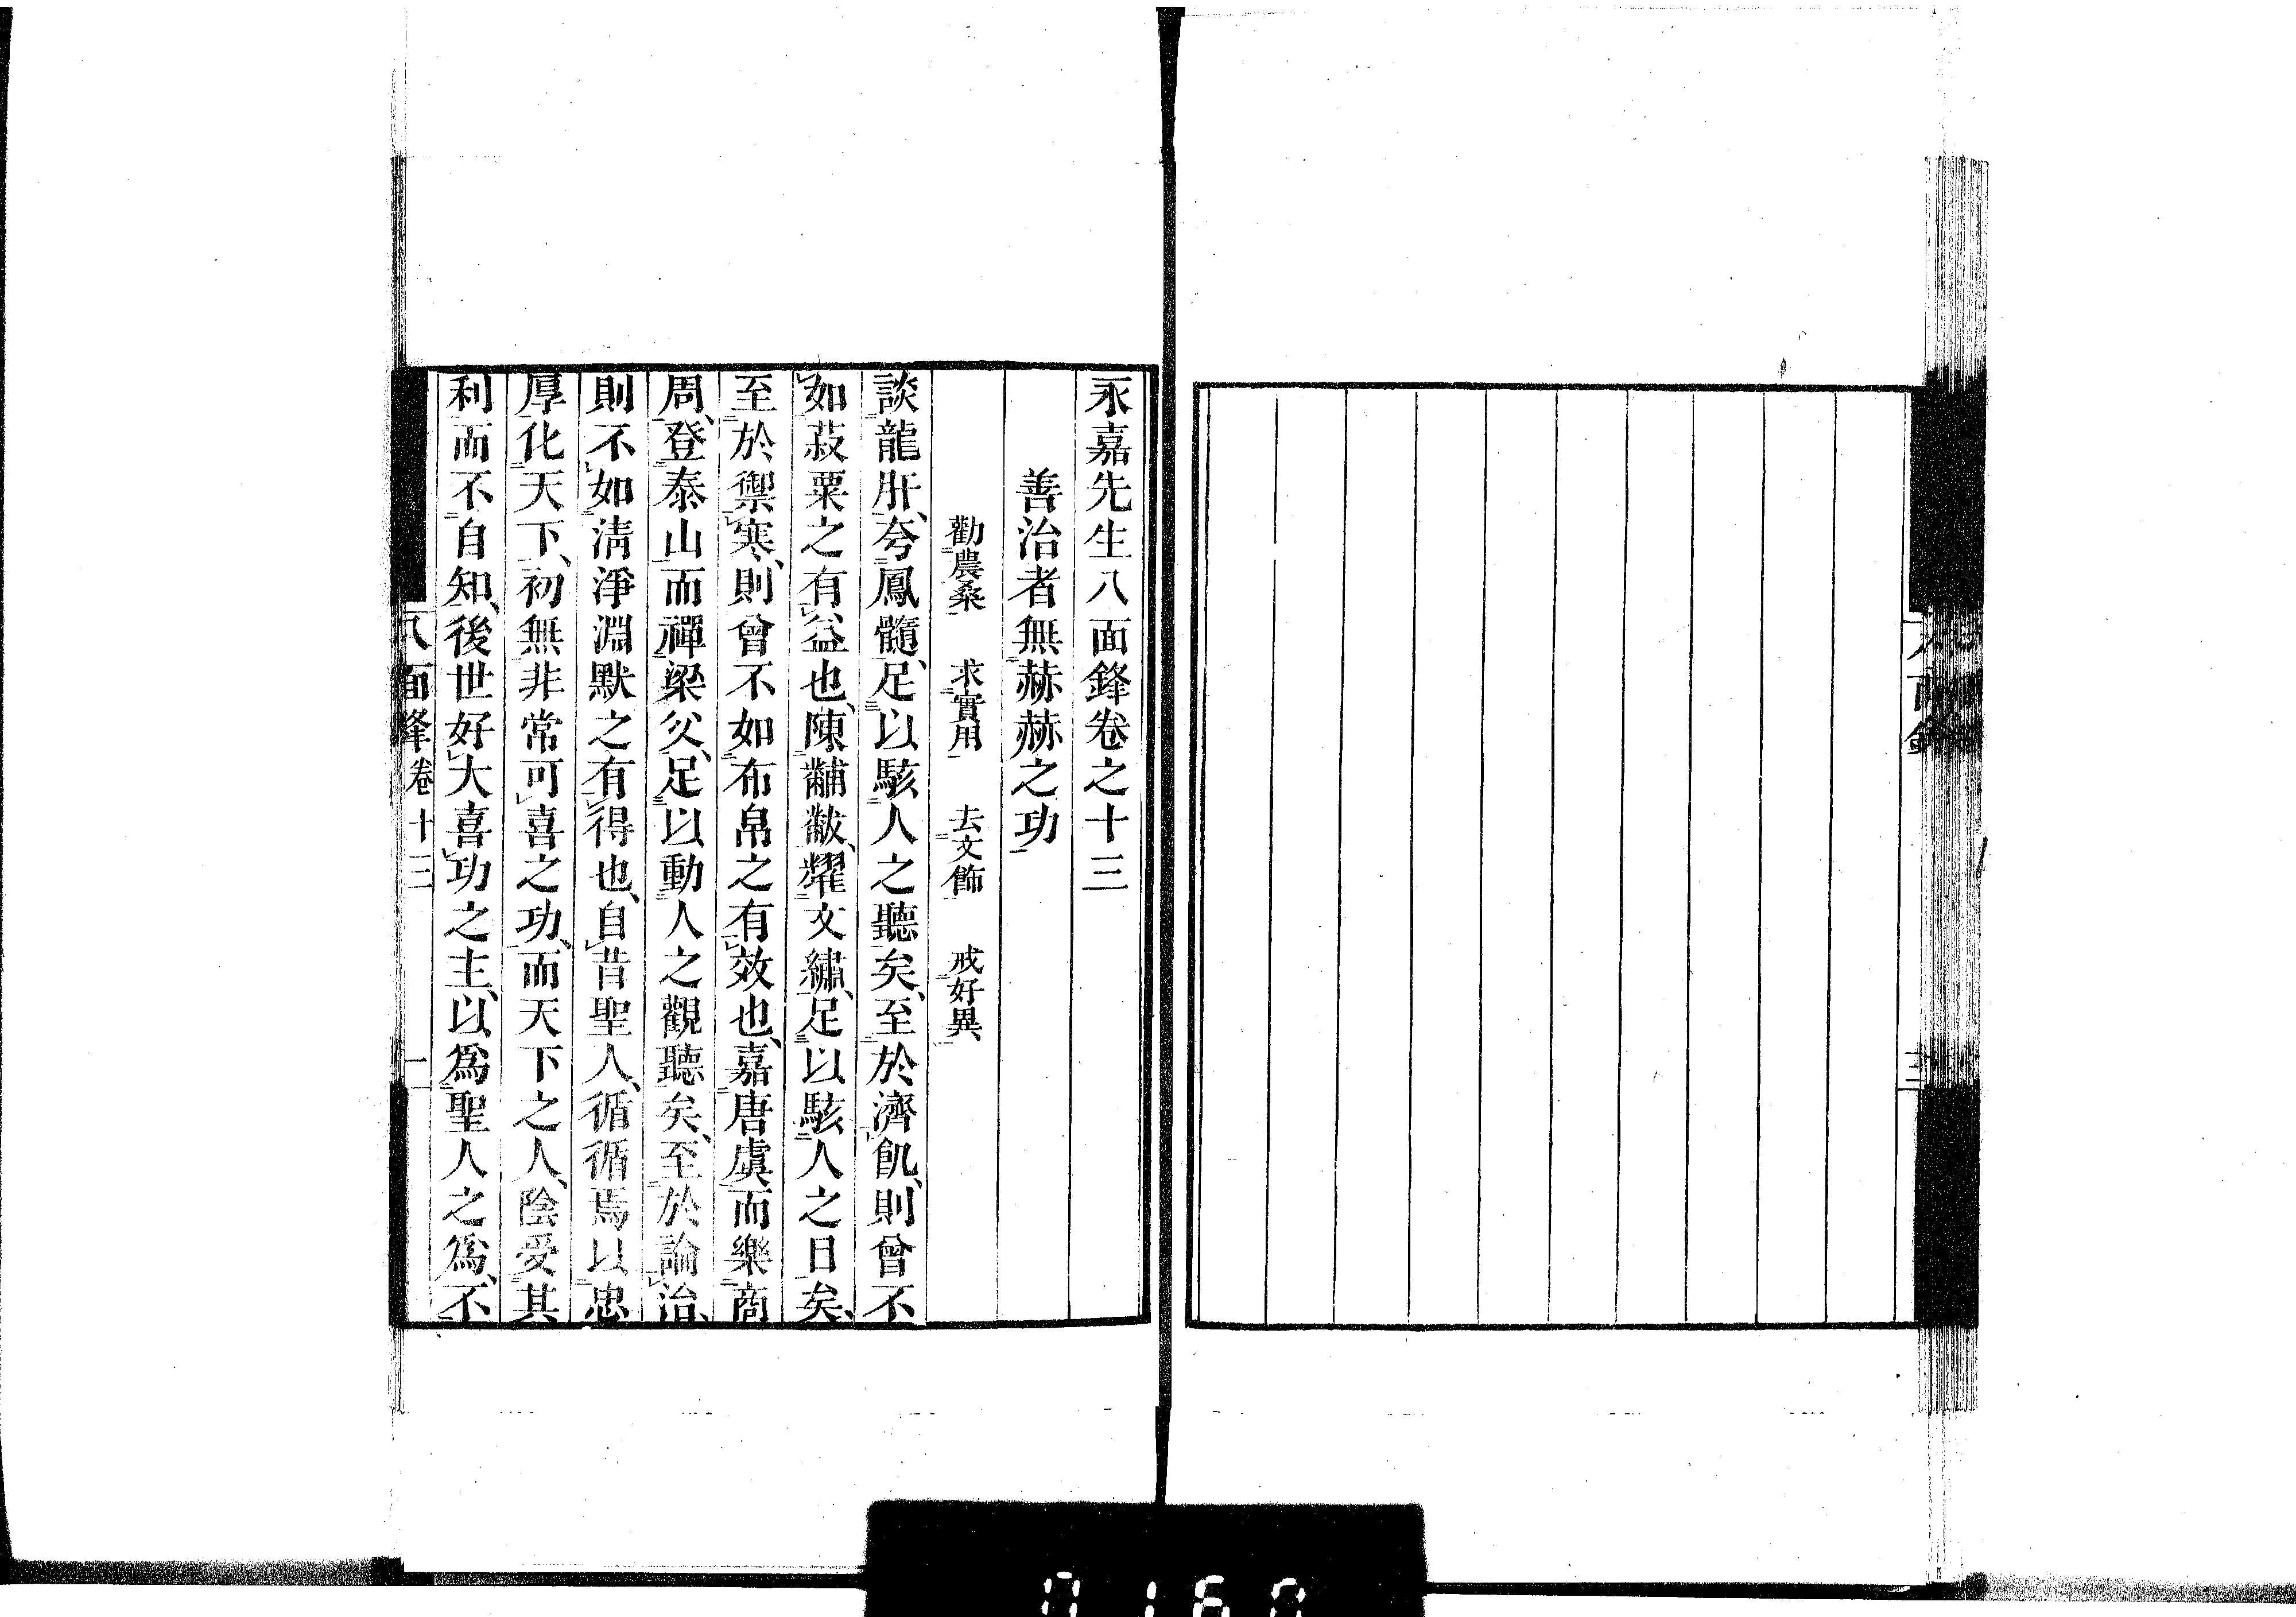 永嘉先生八面鋒卷之十三
善治者無赫赫之功
勸農桑 求實用 去文飾 戒好異
談龍肝、夸鳳髓、足以駭人之聽矣、至於濟飢、則曾不
如菽粟之有益也、陳黼黻、耀文繡、足以駭人之日矣、
至於禦寒、則曾不如布帛之有效也、嘉唐虞而樂商
周、登泰山而禪梁父、足以動人之觀聽矣、至於論治、
則不如清淨淵默之有得也、自昔聖人、循循焉以忠
厚化天下、初無非常可喜之功、而天下之人、陰受其
利而不自知、後世好大喜功之主、以爲聖人之爲、不
八面鋒卷十三 一
0160